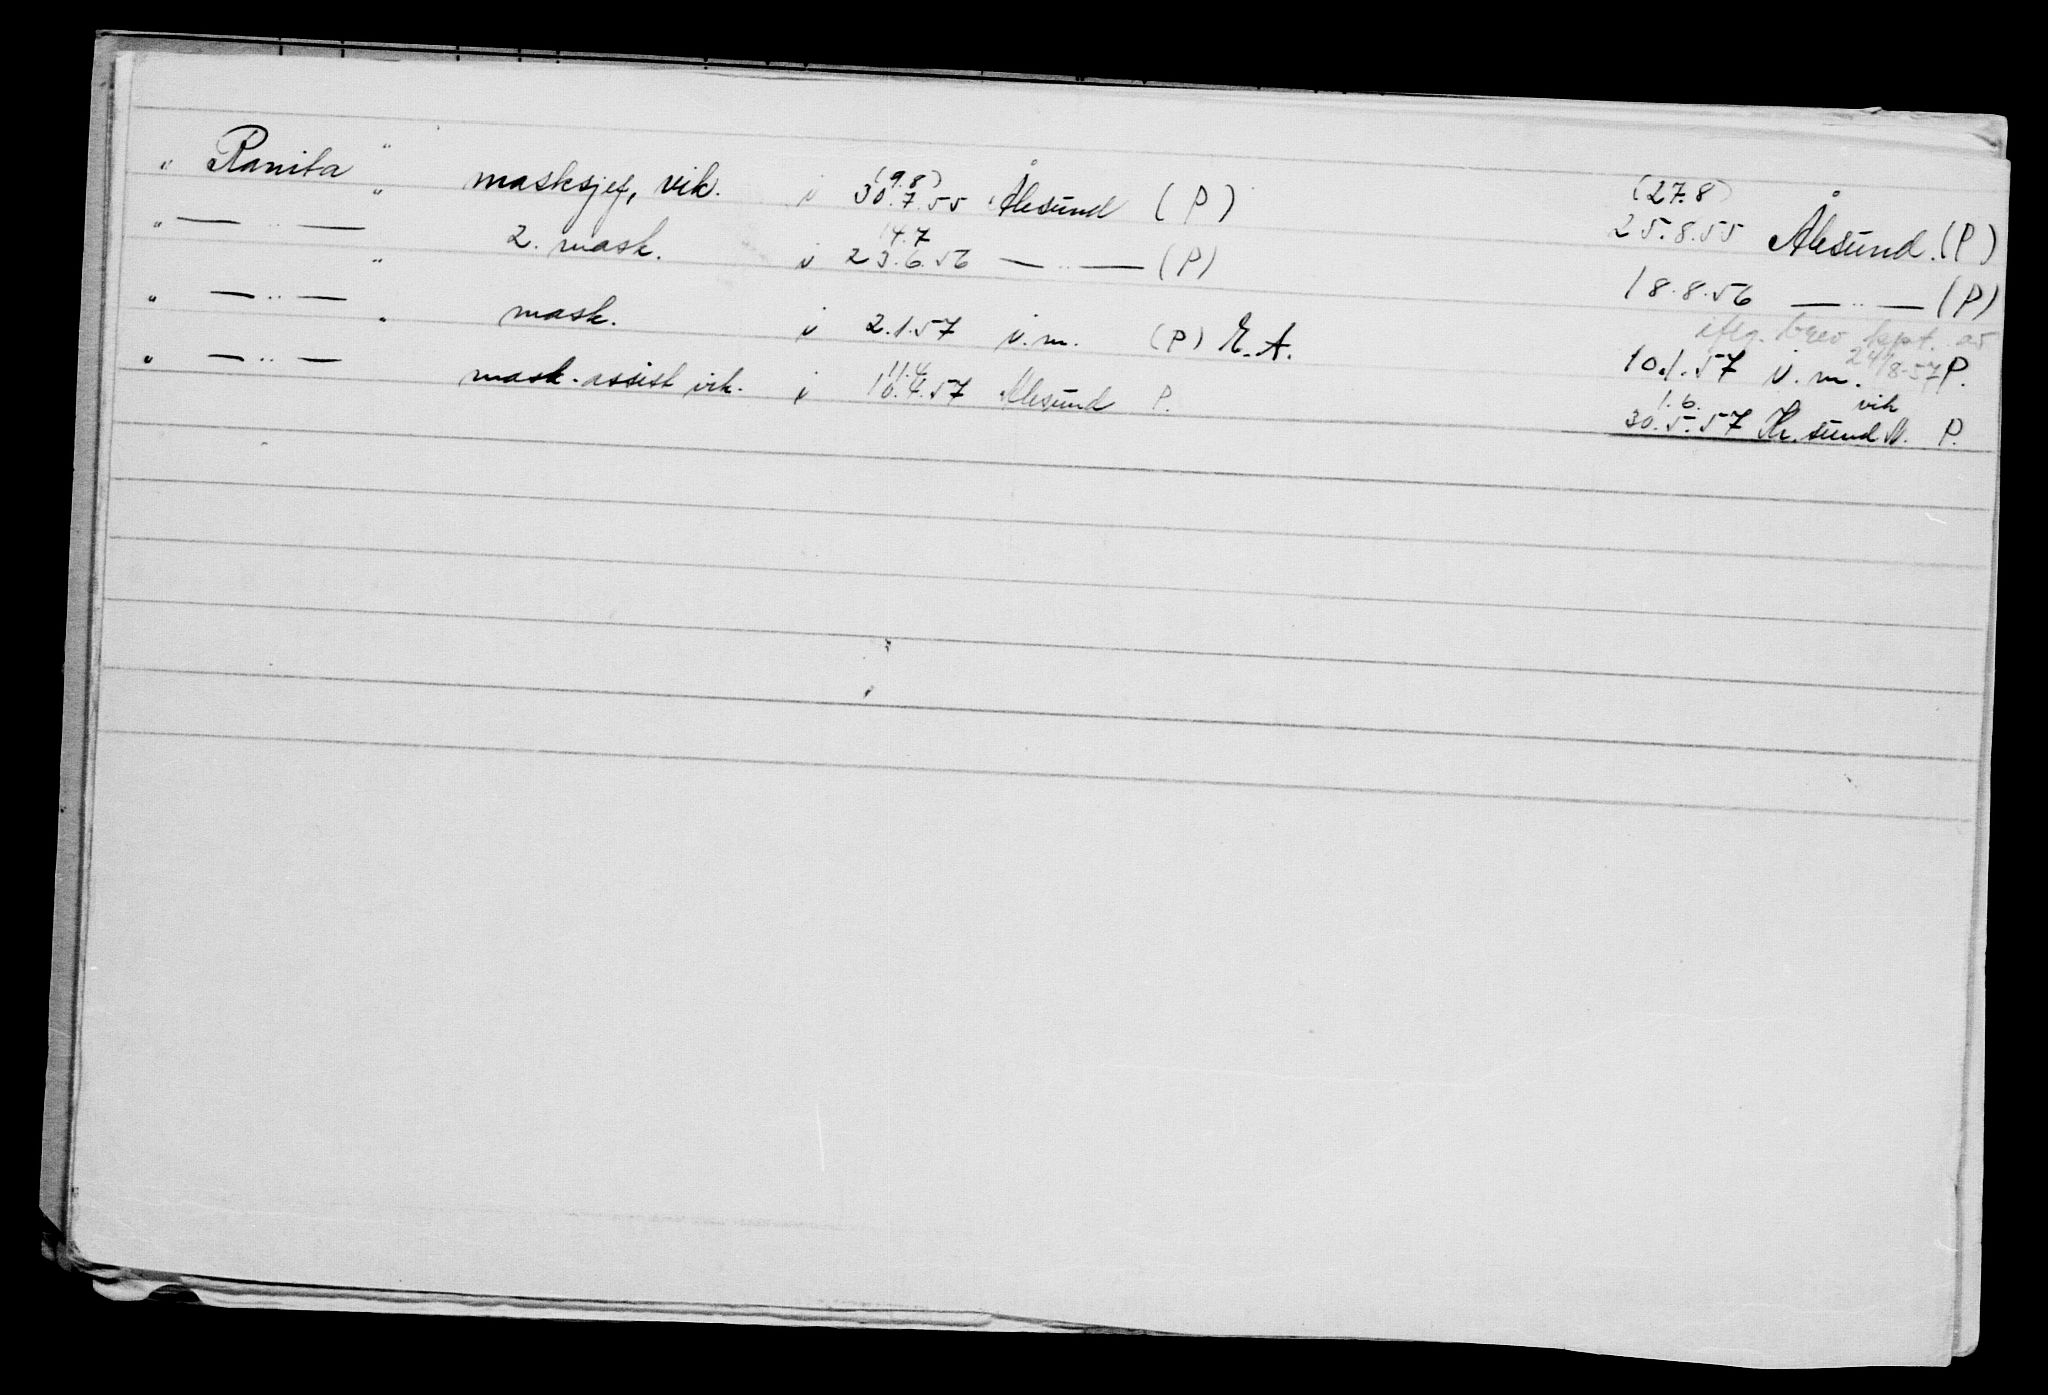 " Ranita " masksjef, vik. i (9.8) 30.7.55 Ålesund (P) (27.8) 25.8.55 Ålesund. (P)
" — " — " 2. mask. i 14.7 23.6.56 — " — (P) 18.8.56 — " — (P)
iflg. brev kpt. av 24/8-57
" — " — " mask. i 2.1.57 i.m. (P) E.A. 10.1.57 i.m. P.
" — " — mask.assist vik. i 11.4 10.4.57 Ålesund P. 1.6. 30.5.57 Kr.sund N. vik P.